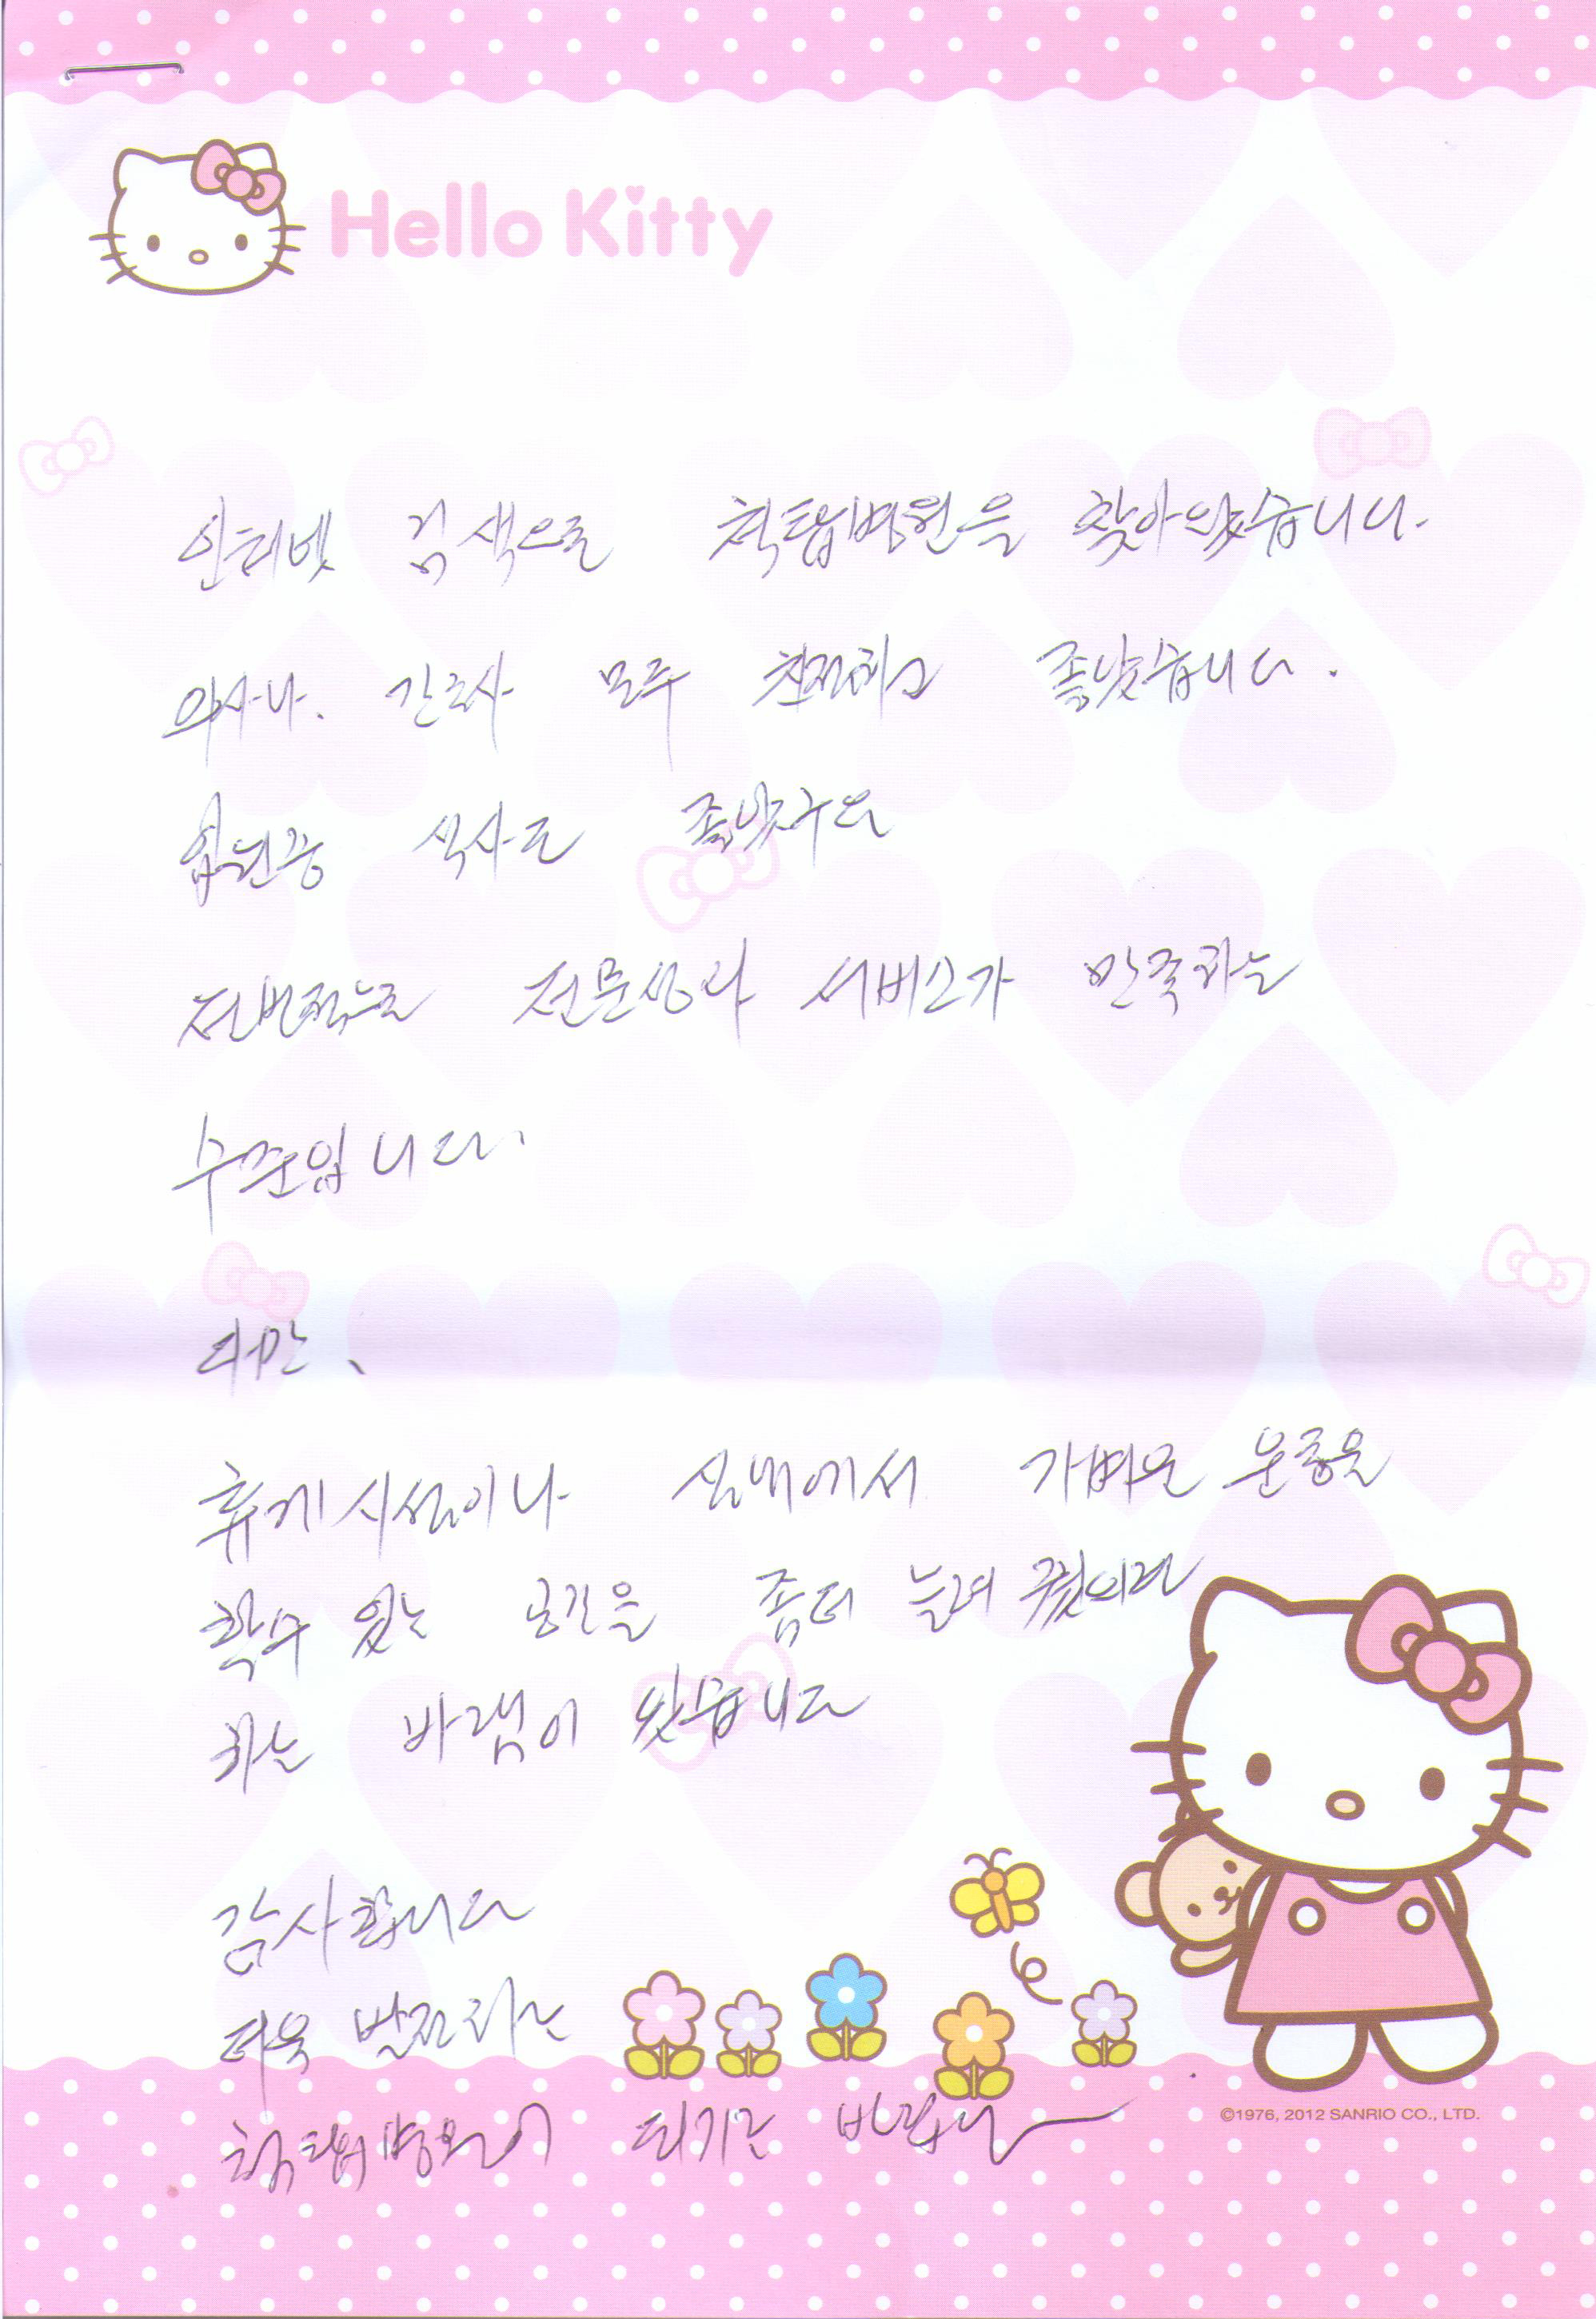 Hello Kitty
인터넷 검색으로 척탑병원을 찾아왔습니다.
의사나. 간호사 모두 친절하고 좋았습니다.
입원중 식사도 좋았구요
전반적으로 전문성이나 서비스가 만족하는
수준입니다.
다만、
휴게시설이나 실내에서 가벼운 운동을
할수 있는 공간을 좀더 늘려
하는 바램이 있습니다
감사합니다
더욱 발전하는
척탑병원이 되기를
©1976, 2012 SANRIO CO., LTD.